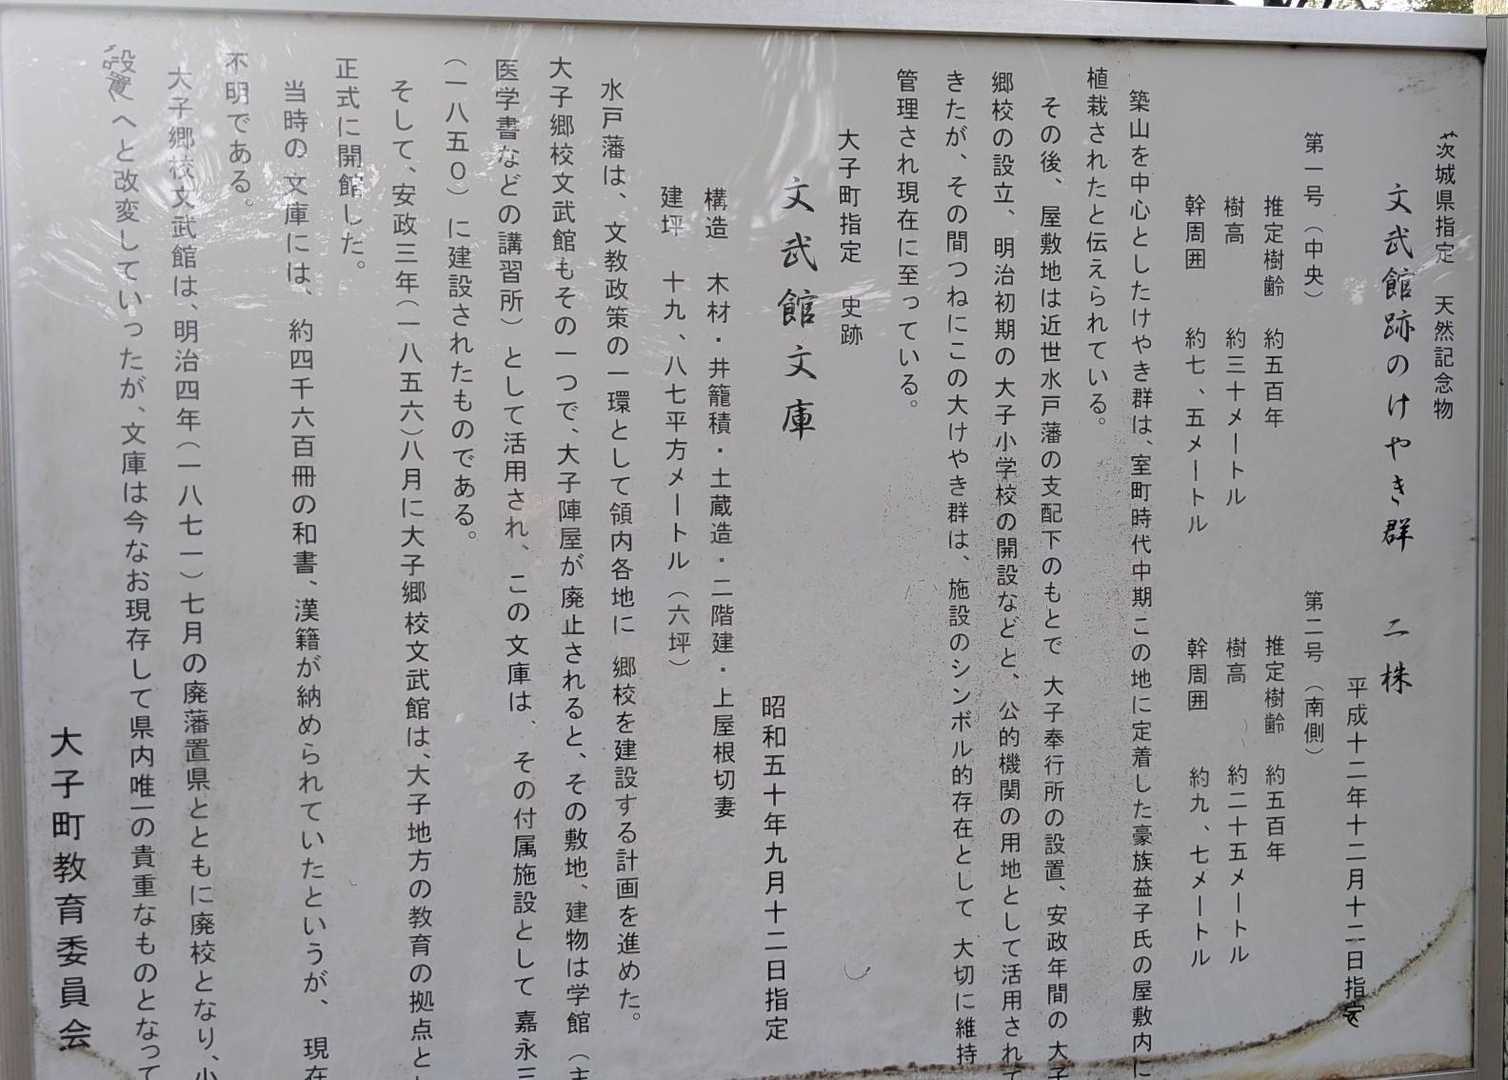 茨城県指定 天然記念物
文武館跡のけやき群 二株
平成十二年十二月十二日指定
第一号（中央） 第二号（南側）
推定樹齢 約五百年 推定樹齢 約五百年
樹高 約三十メートル 樹高 約二十五メートル
幹周囲 約七、五メートル 幹周囲 約九、七メートル
築山を中心としたけやき群は、室町時代中期この地に定着した豪族益子氏の屋敷内に
植栽されたと伝えられている。
その後、屋敷地は近世水戸藩の支配下のもとで 大子奉行所の設置、安政年間の大子
郷校の設立、明治初期の大子小学校の開設などと、公的機関の用地として活用されて
きたが、その間つねにこの大けやき群は、施設のシンボル的存在として 大切に維持
管理され現在に至っている。
大子町指定 史跡
文武館文庫
昭和五十年九月十二日指定
構造 木材・井籠積・土蔵造・二階建・上屋根切妻
建坪 十九、八七平方メートル（六坪）
水戸藩は、文教政策の一環として領内各地に 郷校を建設する計画を進めた。
大子郷校文武館もその一つで、大子陣屋が廃止されると、その敷地、建物は学館（主
医学書などの講習所）として活用され、この文庫は、その付属施設として 嘉永三
（一八五０）に建設されたものである。
そして、安政三年（一八五六）八月に大子郷校文武館は、大子地方の教育の拠点とし
正式に開館した。
当時の文庫には、約四千六百冊の和書、漢籍が納められていたというが、現在
不明である。
大子郷校文武館は、明治四年（一八七一）七月の廃藩置県とともに廃校となり、小
設置へと改変していったが、文庫は今なお現存して県内唯一の貴重なものとなって
大子町教育委員会